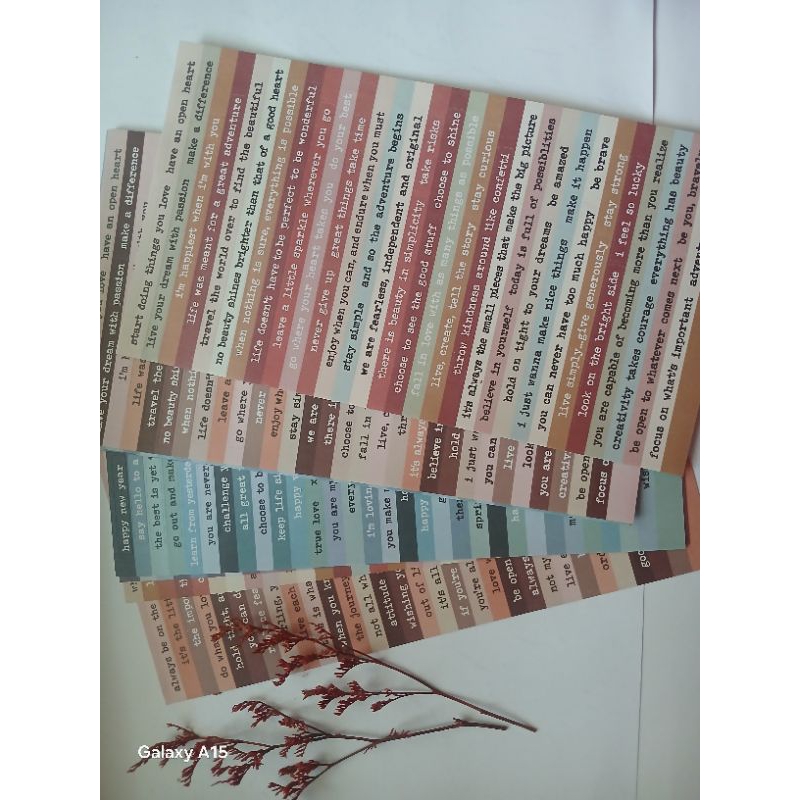 have an open heart
make a difference
start doing things you love have an open heart
live your dream with passion make a difference
i'm happiest when i'm with you
life was meant for a great adventure
travel the world over to find the beautiful
no beauty shines brighter than that of a good heart
when nothing is sure, everything is possible
life doesn't have to be perfect to be wonderful
leave a little sparkle wherever you go
go where your heart takes you do your best
never give up great things take time
enjoy when you can, and endure when you must
stay simple and so the adventure begins
we are fearless, independent and original
there is beauty in simplicity take risks
choose to see the good stuff choose to shine
fall in love with as many things as possible
live, create, tell the story stay curious
throw kindness around like confetti
it's always the small pieces that make the big picture
believe in yourself today is full of possibilities
hold on tight to your dreams be amazed
i just wanna make nice things make it happen
you can never have too much happy be brave
live simply.give generously stay strong
look on the bright side i feel so lucky
you are capable of becoming more than you realize
creativity takes courage everything has beauty
be open to whatever comes next be you, bravely
focus on what's important
have an open heart
your dream with passion make a difference
i'm
life was
travel the
no beauty shi
when nothi
life doesn
leave a
go where
never
enjoy wh
stay si
we are
choose to
fall in
live, c
it's always
believe i
hold
i just w
you can
live
look
you are
creativ
be open
focus
happy new year
say hello to a
the best is yet
go out and make
learn from yesterda
you are never
challenge
all great
choose to b
keep life si
happy
true love
you are my
every
i'm lovin
you make
happy
the
spri
always be on the
it's the lit
the impo
do what you lo
hold tight,
you can do
when you k
the journey
not all wh
attitude
wishing yo
out of
it's all
if you're
you're al
love
be open
always
not my
live
goo
Galaxy A15